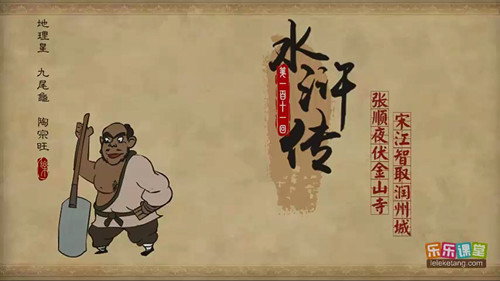 地理星 九尾龟 陶宗旺
水浒传
第一百十一回
张顺夜伏金山寺
宋江智取润州城
乐乐课堂
leleketang.com